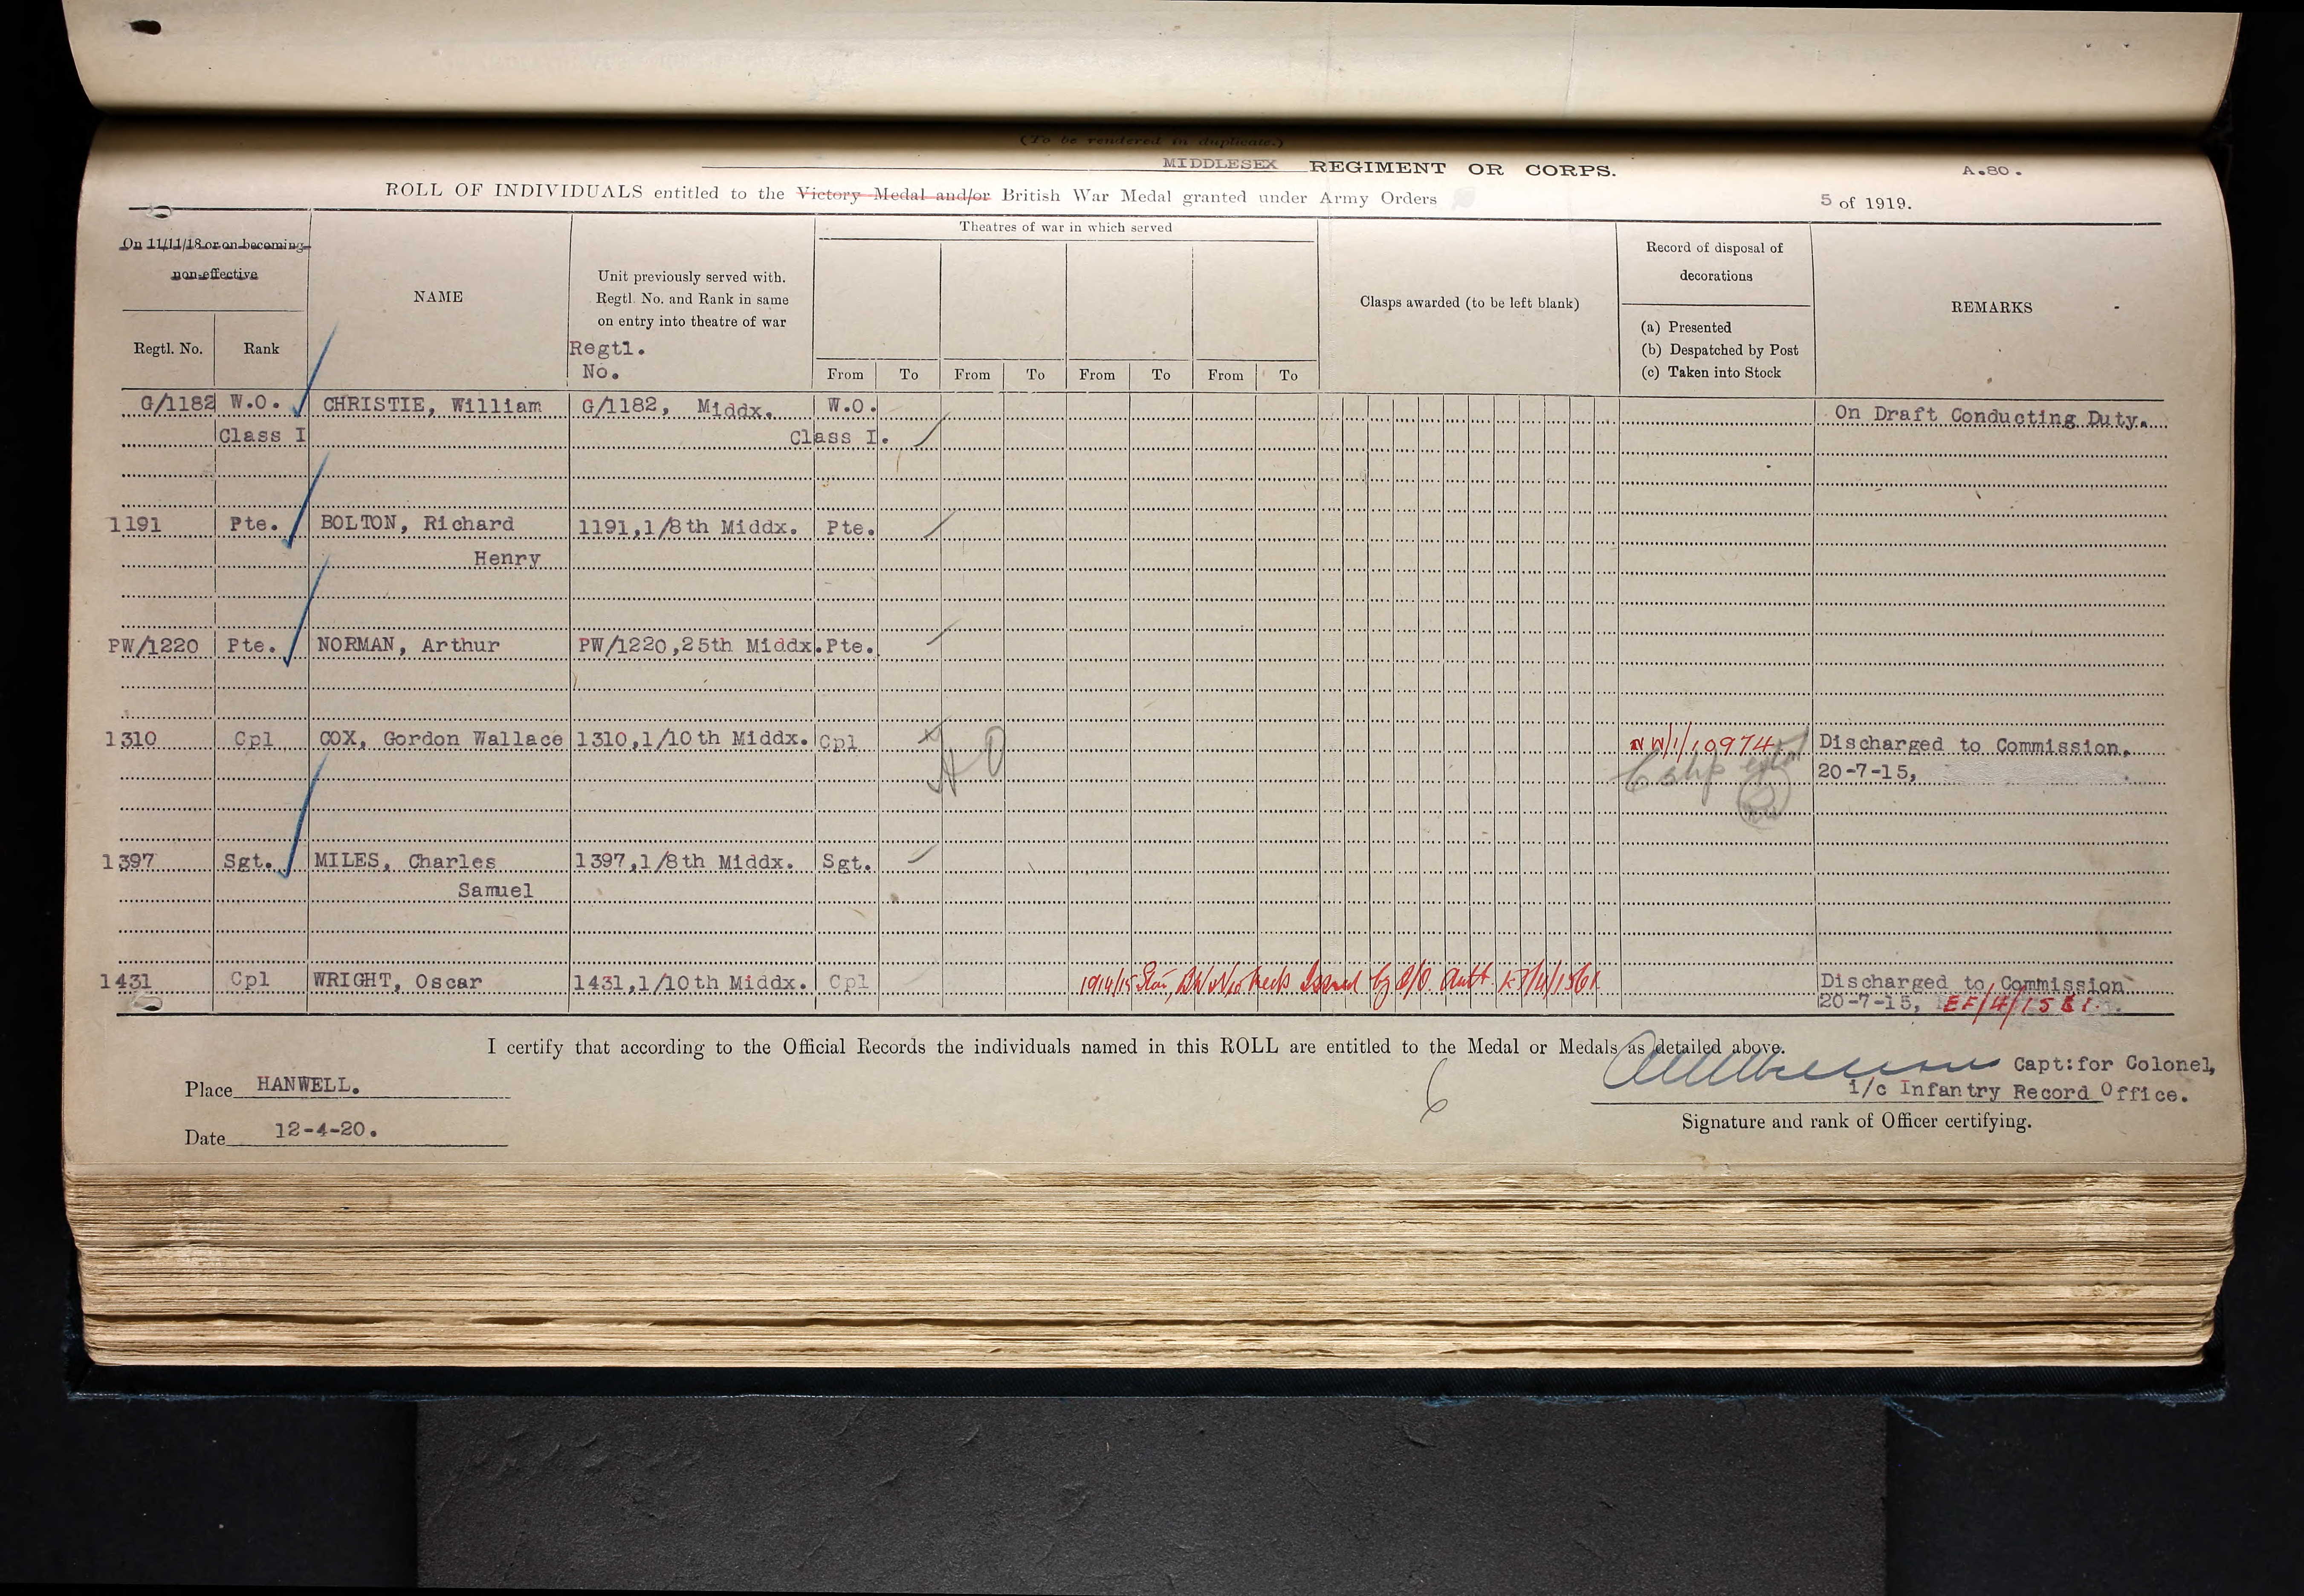 (To be rendered in duplicate.)
MIDDLESEX REGIMENT OR CORPS. A.80.
ROLL OF INDIVIDUALS entitled to the Victory Medal and/or British War Medal granted under Army Orders 5 of 1919.
On 11/11/18 or on becoming
non-effective
Regtl. No.
Rank
NAME
Unit previously served with.
Regtl. No. and Rank in same
on entry into theatre of war
Regtl.
No.
Theatres of war in which served
From To From To From To From To
Clasps awarded (to be left blank)
Record of disposal of
decorations
(a) Presented
(b) Despatched by Post
(c) Taken into Stock
REMARKS
G/1182 W.O. CHRISTIE, William G/1182, Middx. W.O. On Draft Conducting Duty.
Class I Class I.
1191 Pte. BOLTON, Richard 1191,1/8th Middx. Pte.
Henry
PW/1220 Pte. NORMAN, Arthur PW/1220,25th Middx. Pte.
1310 Cpl COX, Gordon Wallace 1310,1/10th Middx. Cpl NW/1/10974 Discharged to Commission.
20-7-15,
1397 Sgt. MILES, Charles 1397,1/8th Middx. Sgt.
Samuel
1431 Cpl WRIGHT, Oscar 1431,1/10th Middx. Cpl 1914/15 Star, Issued by Auth Discharged to Commission
20-7-15, EF/4/1561.
I certify that according to the Official Records the individuals named in this ROLL are entitled to the Medal or Medals as detailed above.
Capt: for Colonel,
i/c Infantry Record Office.
Place HANWELL.
Signature and rank of Officer certifying.
Date 12-4-20.
6